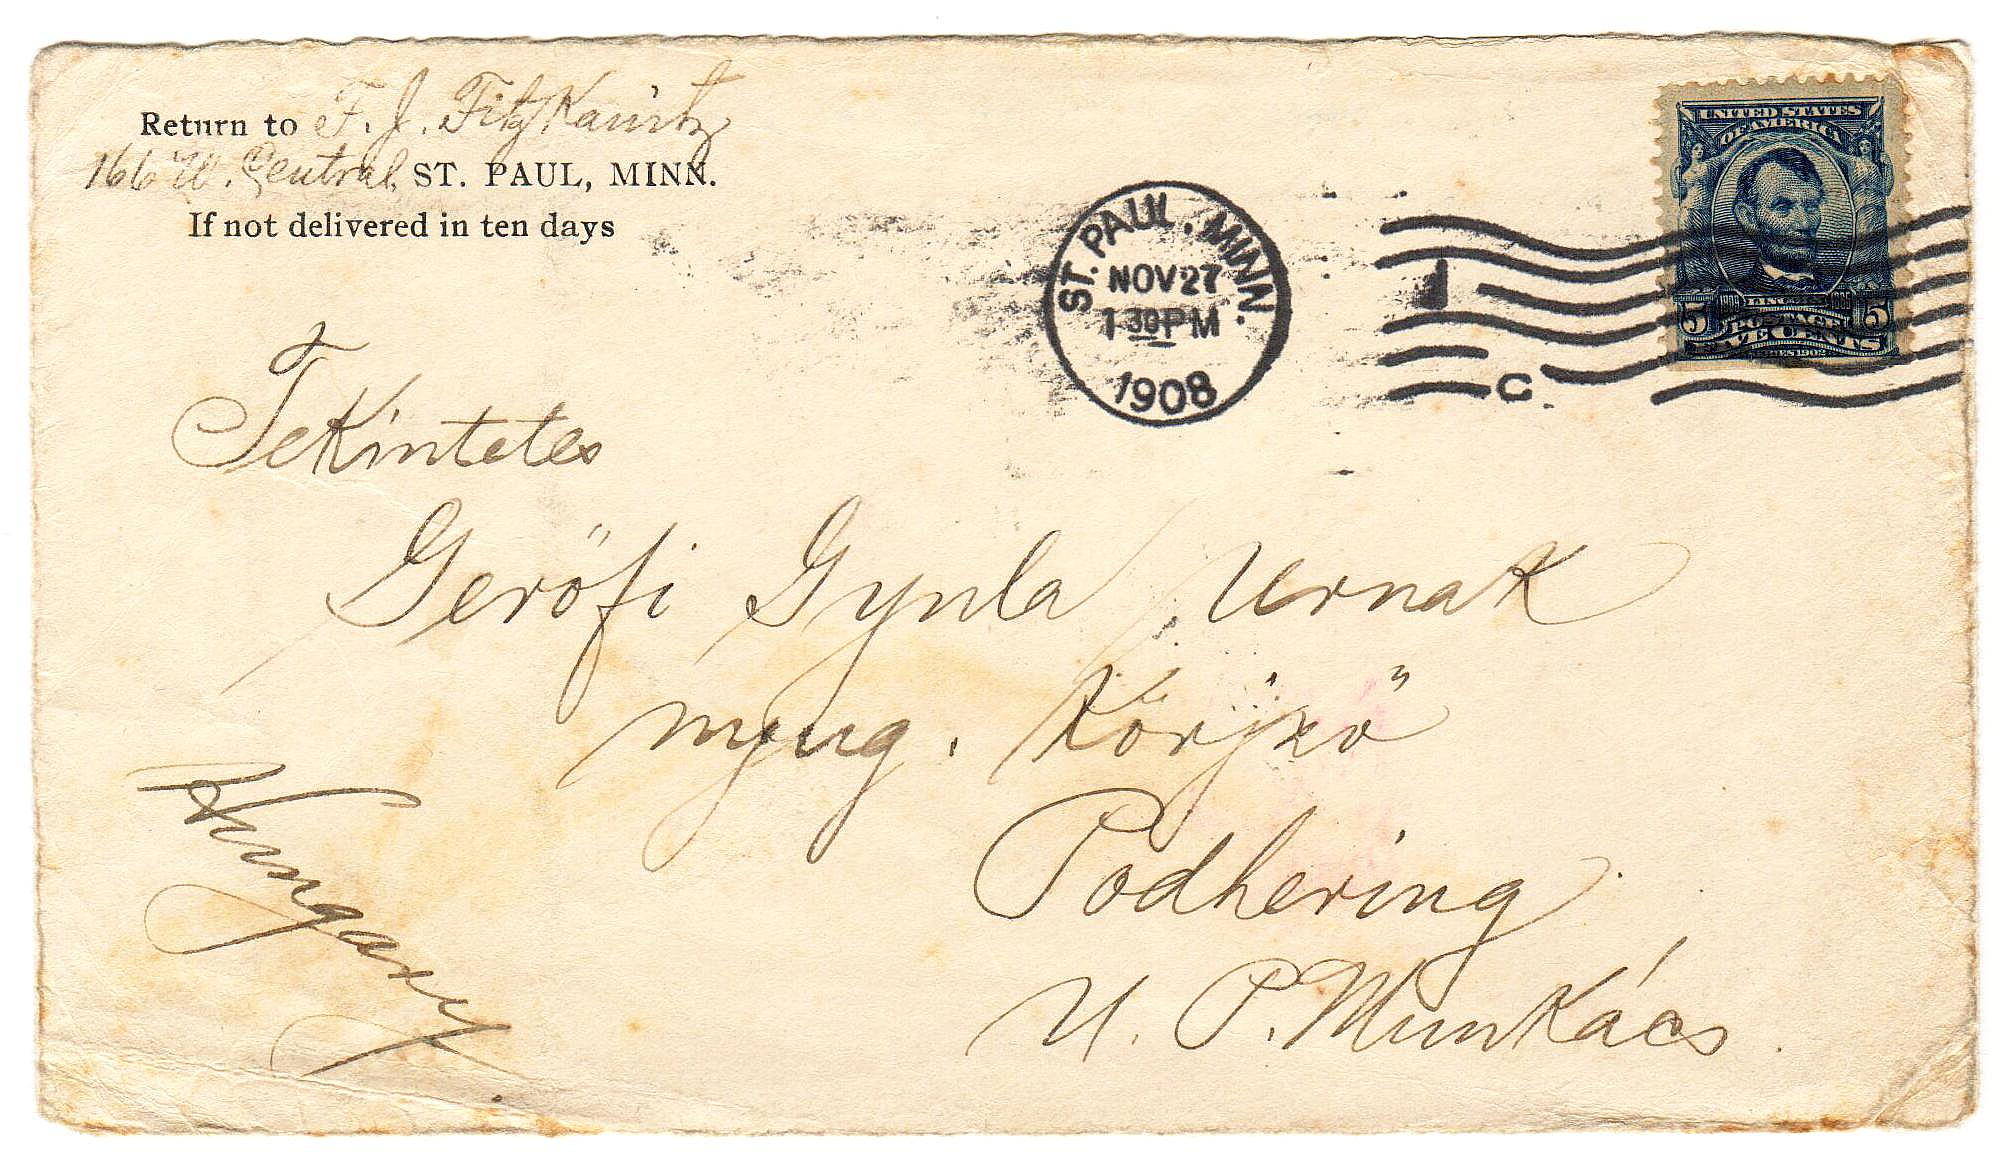 Return to F. J. Fitz
166 W. Central ST. PAUL, MINN.
If not delivered in ten days
ST. PAUL. MINN.
NOV 27
1 30 PM
1908
1
C
UNITED STATES
OF AMERICA
5 LINCOLN 5
POSTAGE
FIVE CENTS
SERIES 1902
Tekintetes
Geröfi Gyula Urnak
nyug. Körjző
Podhering
U. P. Munkács
Hungary